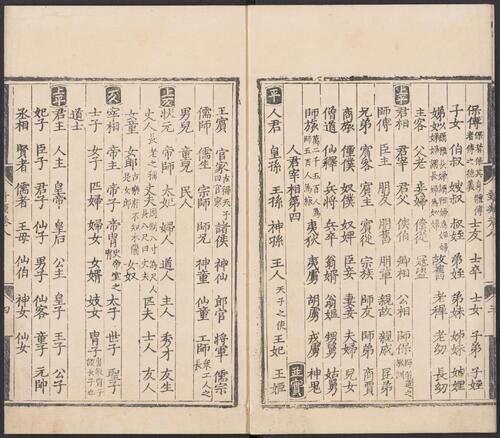 保傅 保者保其身體傅者傅之德義 士友 士卒 士女 子弟 子姪
子女 伯叔 嫂叔 叔姪 弟姪 弟妹 姊妹
娣姒 故舊 老穉 老幼 長幼
主客 父老 儐從
君相 君父 侯伯 卿相 公相 師保
師傅 主臣 朋友 朋舊 親故 親戚 昆弟
兄弟 賓客 賓主 賓從 宗族 師友 師弟 商賈
商旅 僮僕 奴僕 奴婢 臣妾 妻妾 夫婦 兒女
僧道 仙釋 兵將 兵卒 翁婿 翁媼 甥舅 姑舅
師旅 夷狄 夷虜 胡虜 戎虜 神鬼
人君宰相第四 並實
平 人君 皇孫 王孫 神孫 王人 天子之使 王妃 王姬
王賓 官家 諸侯 神仙 郎官 將軍 儒宗
儒師 儒生 宗師 師兄 神童 仙童 工師 衆工人之長
男兒 童兒 民人
上去 狀元 帝師 太妃 婦人 道人 主人 秀才 友生
丈人 長老之稱 丈夫 匹夫 士人 友人
女童 女郎 古樂府不知木蘭是女郎
宰相 帝主 帝子 帝胄 太子 世子 聖子
士子 女子 匹婦 婦女 女婿 妓女 胄子
道士
上平 君主 人主 皇帝 皇后 公主 皇子 王子 公子
妃子 臣子 君子 仙子 男子 仙客 童子 元帥
丞相 賢者 儒者 王母 仙伯 神女 仙女